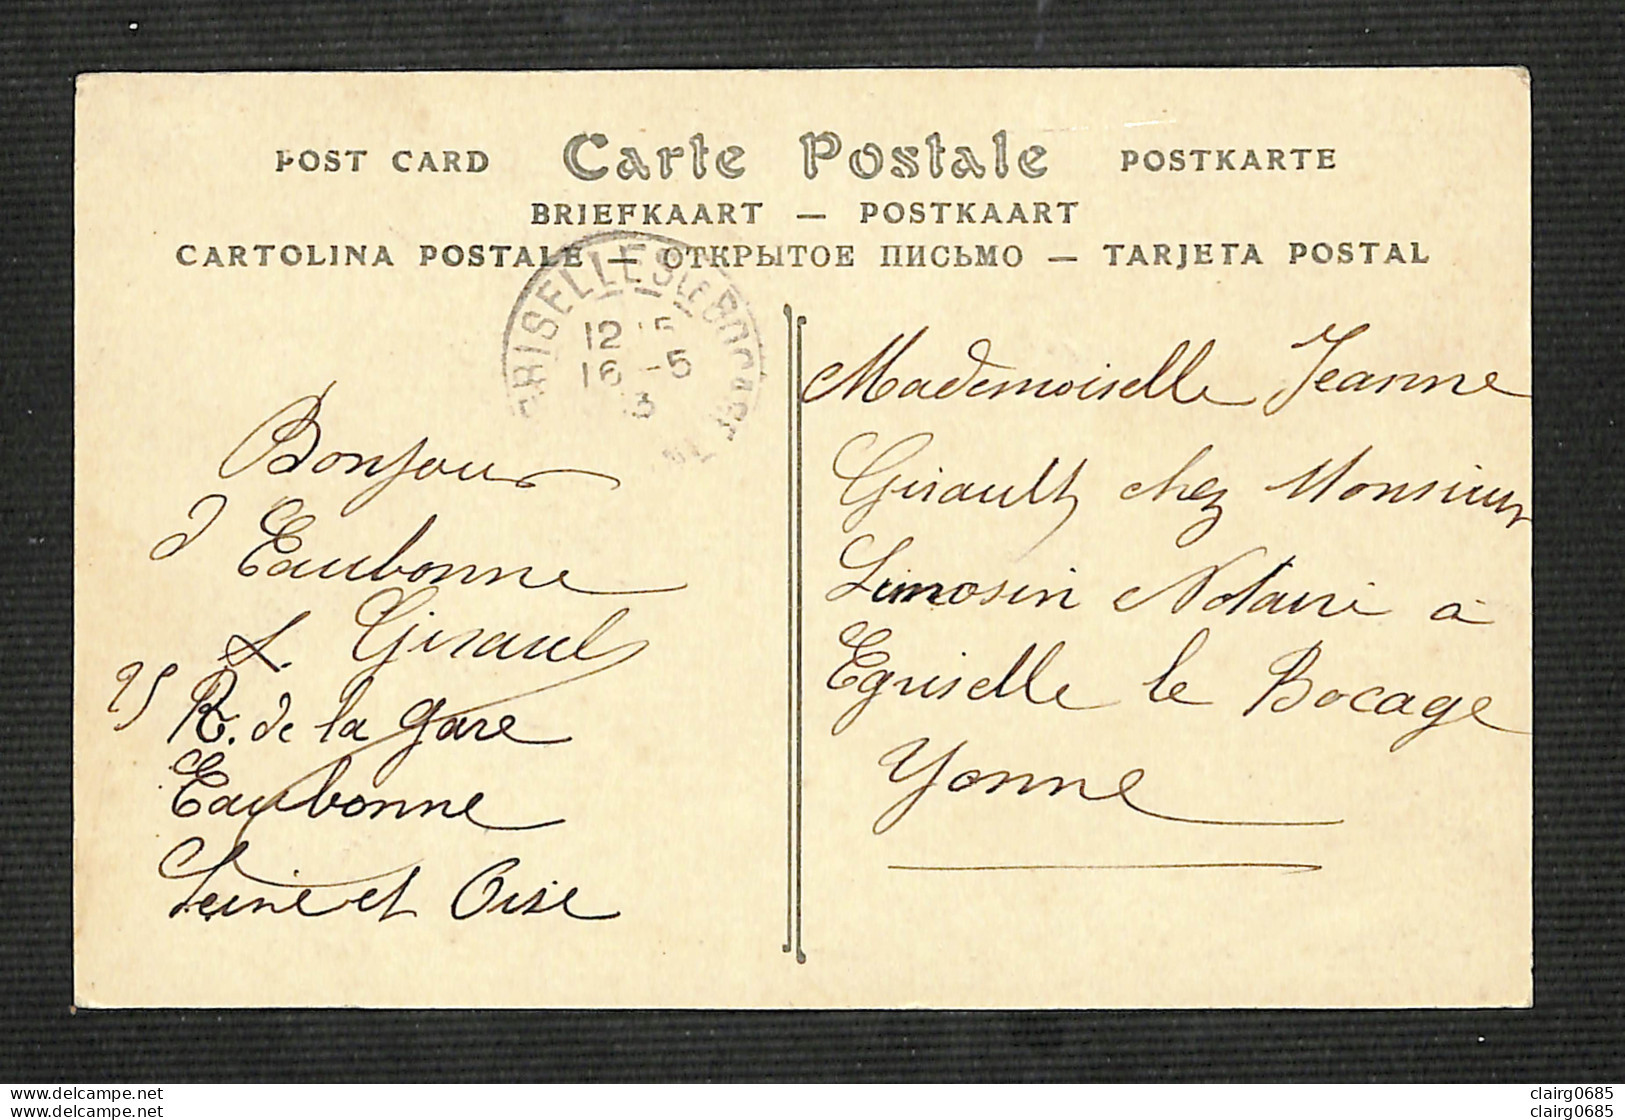 POST CARD Carte Postale POSTKARTE
BRIEFKAART — POSTKAART
CARTOLINA POSTALE — ОТКРЫТОЕ ПИСЬМО — TARJETA POSTAL
RISELLES LE BOCAGE
12
16 -5
13
Bonjour
d
Eaubonne
L. Girault
25 R. de la gare
Eaubonne
Seine et Oise
Mademoiselle Jeanne
Girault chez Monsieur
Limosin Notaire à
Egriselle le Bocage
Yonne
clairg0685
clairg0685
www.delcampe.net
www.delcampe.net
clairg0685
clairg0685